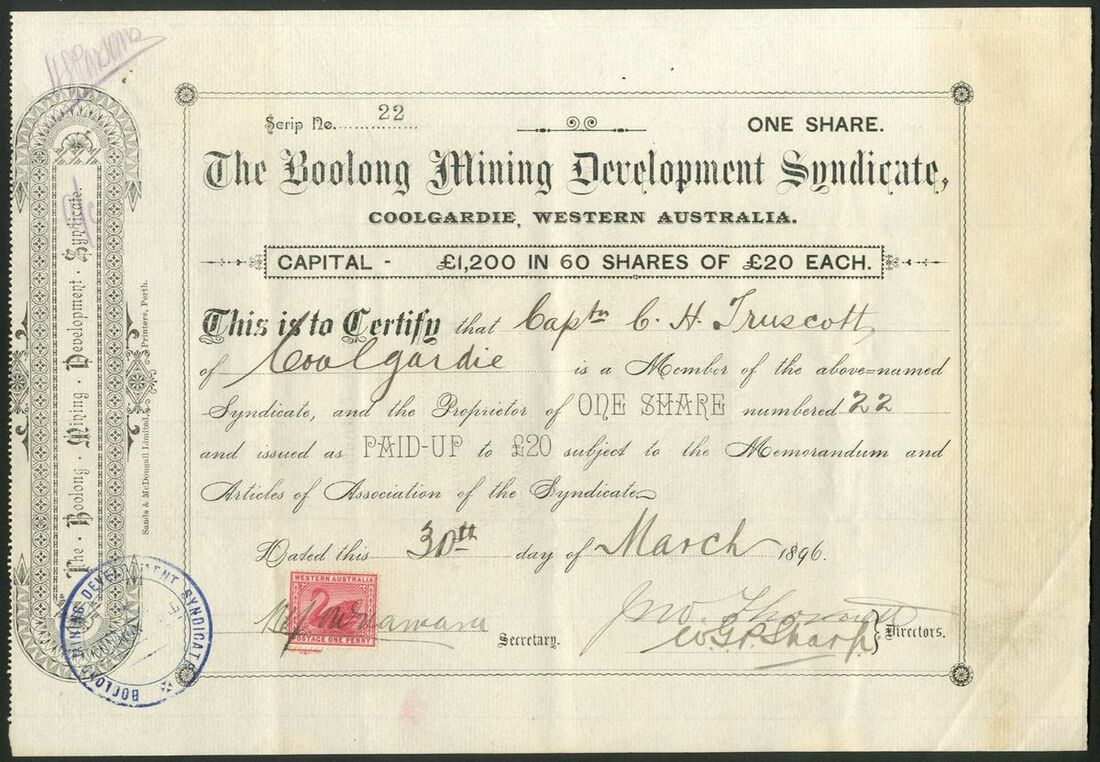 Scrip No. 22
ONE SHARE.
The Boolong Mining Development Syndicate,
COOLGARDIE, WESTERN AUSTRALIA.
CAPITAL - £1,200 IN 60 SHARES OF £20 EACH.
This is to Certify that Captn C. H. Truscott
of Coolgardie is a Member of the above=named
Syndicate, and the Proprietor of ONE SHARE numbered 22
and issued as PAID-UP to £20 subject to the Memorandum and
Articles of Association of the Syndicate
Dated this 30th day of March 1896.
WESTERN AUSTRALIA
POSTAGE ONE PENNY
Secretary.
W.G.P. Sharp
Directors.
The · Boolong · Mining · Development · Syndicate.
Sands & McDougall Limited, Printers, Perth.
BOOLONG MINING DEVELOPMENT SYNDICATE